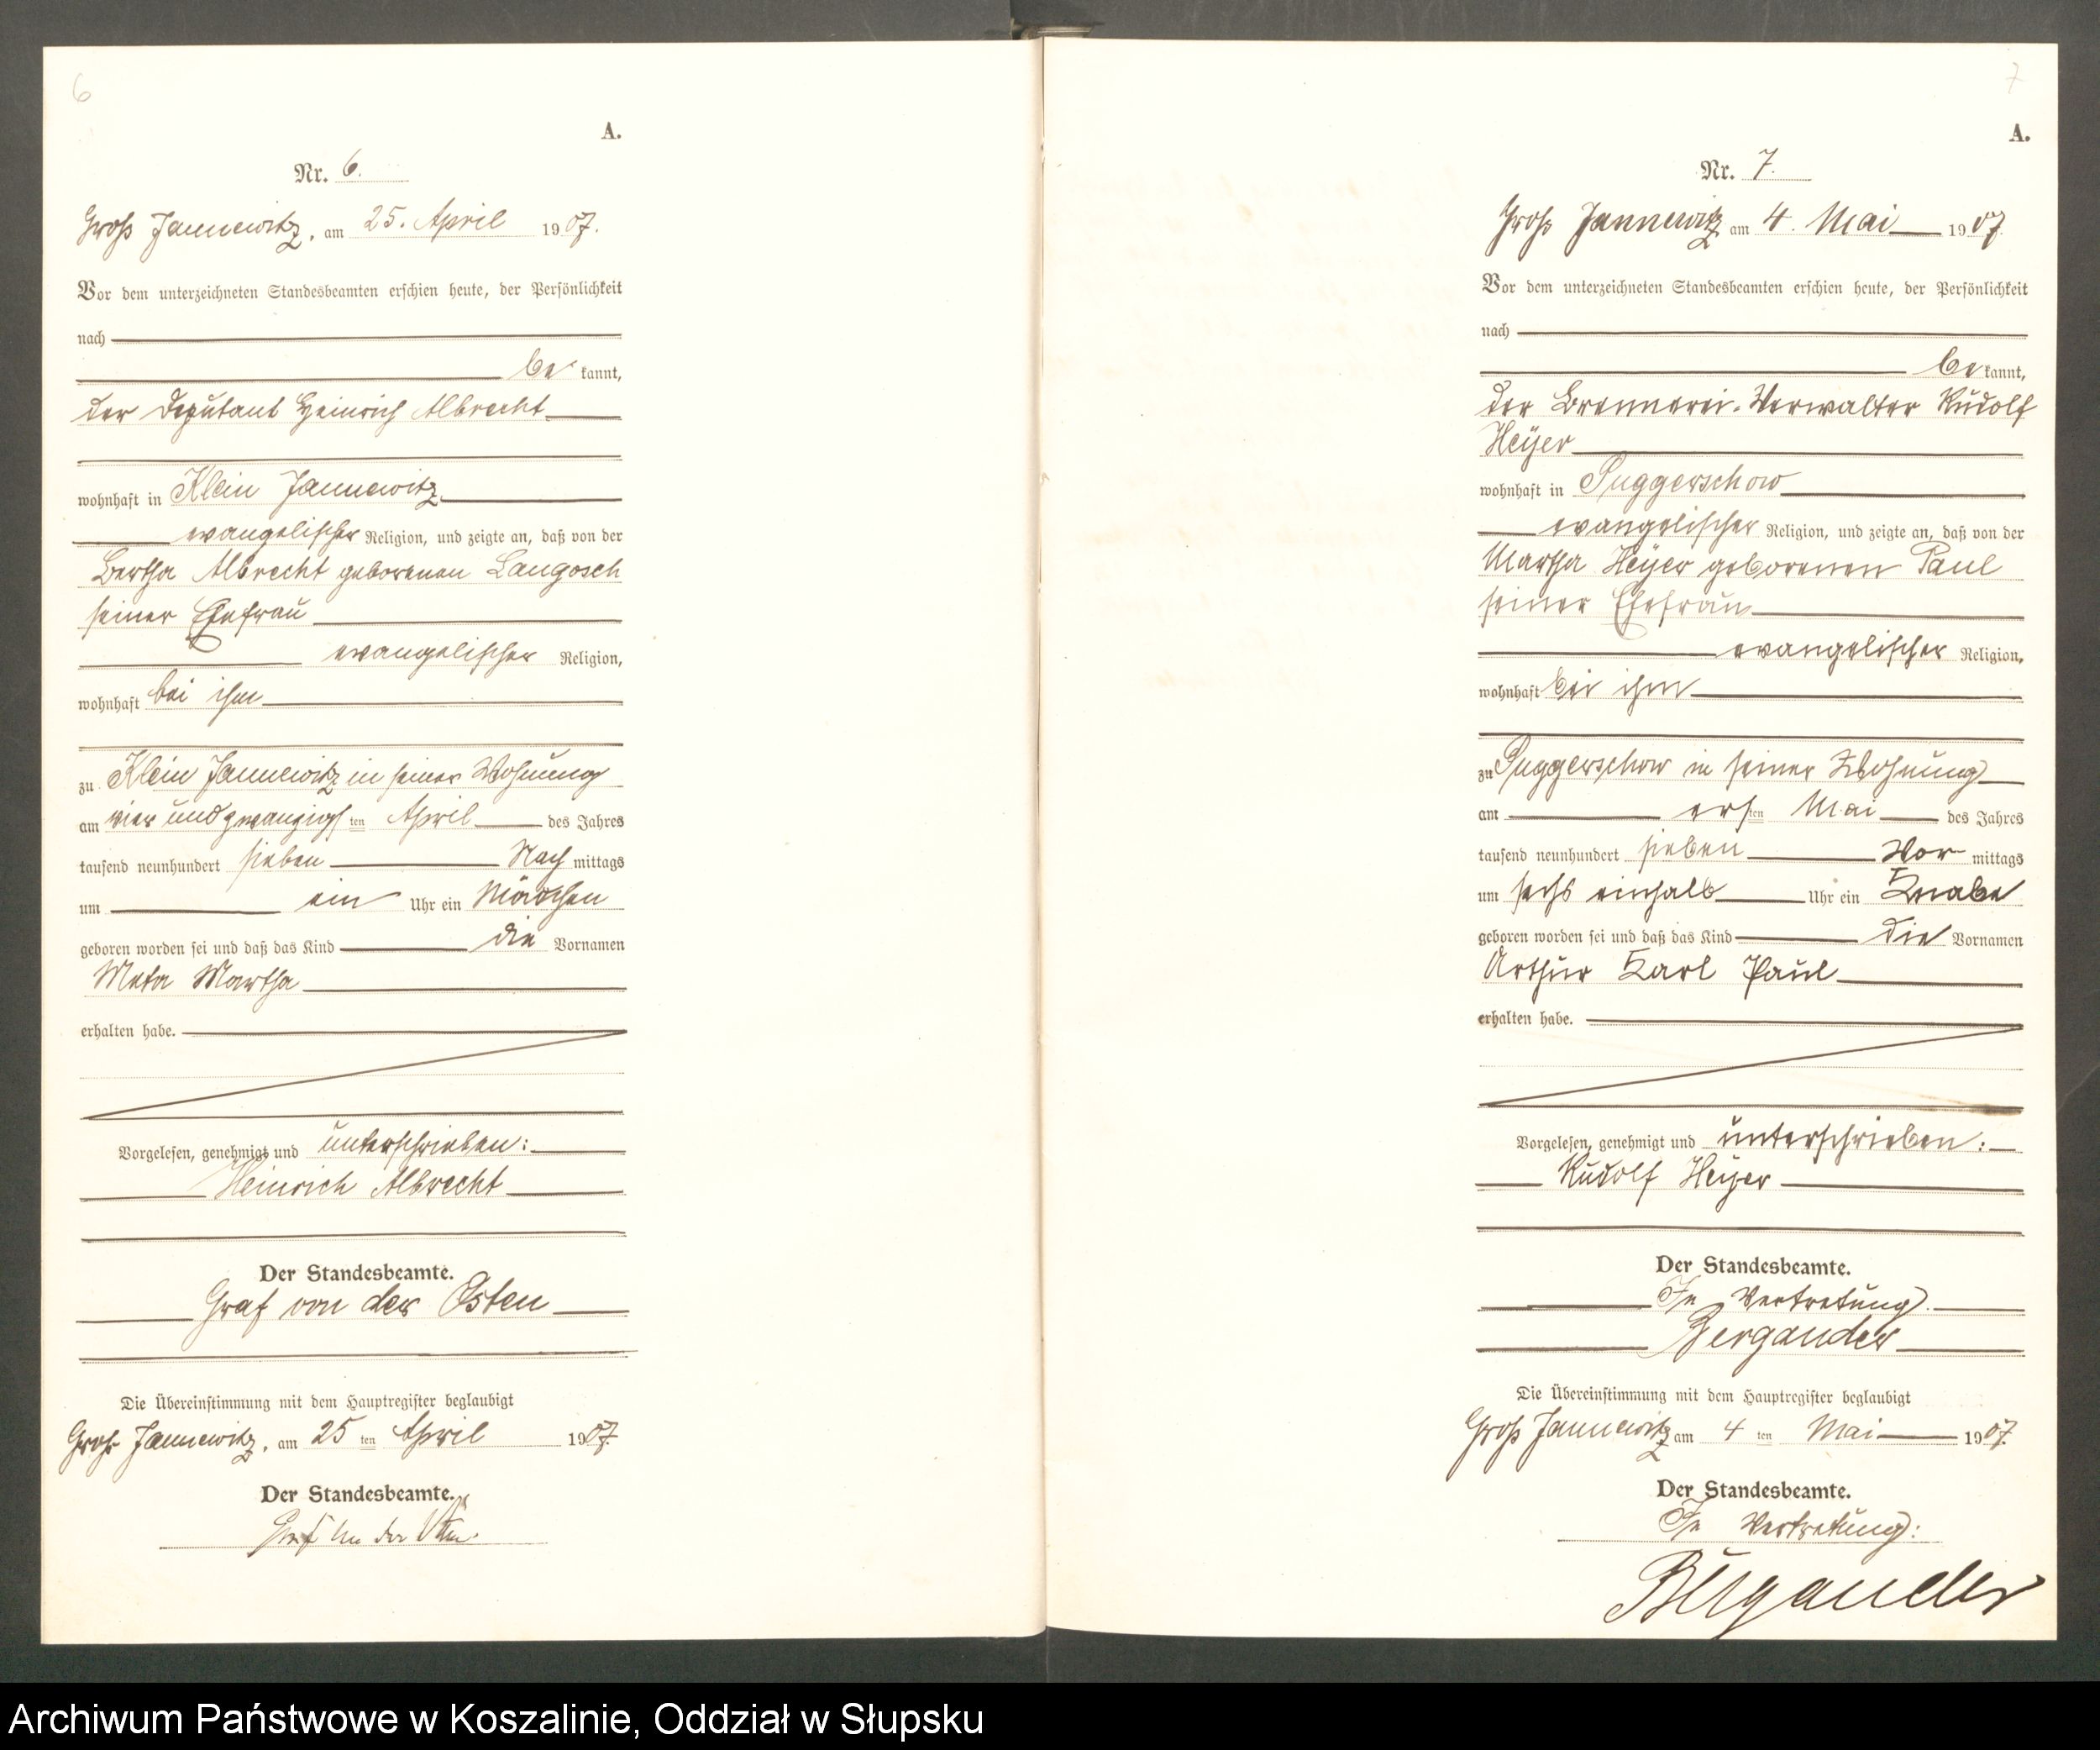 6
A.
Nr. 6.
Groß Jannewitz, am 25. April 1907.
Vor dem unterzeichneten Standesbeamten erschien heute, der Persönlichkeit
nach
be kannt,
der Deputant Heinrich Albrecht
wohnhaft in Klein Jannewitz
evangelischer Religion, und zeigte an, daß von der
Bertha Albrecht geborenen Langosch
seiner Ehefrau
evangelischer Religion,
wohnhaft bei ihm
zu Klein Jannewitz in seiner Wohnung
am vier und zwanzigsten April des Jahres
tausend neunhundert sieben Nach mittags
um ein Uhr ein Mädchen
geboren worden sei und daß das Kind die Vornamen
Meta Martha
erhalten habe.
Vorgelesen, genehmigt und unterschrieben:
Heinrich Albrecht
Der Standesbeamte.
Graf von der Osten
Die Übereinstimmung mit dem Hauptregister beglaubigt
Groß Jannewitz, am 25 ten April 1907.
Der Standesbeamte.
Graf von der Osten.
7
A.
Nr. 7.
Groß Jannewitz am 4. Mai 1907.
Vor dem unterzeichneten Standesbeamten erschien heute, der Persönlichkeit
nach
be kannt,
der Brennerei-Verwalter Rudolf
Heyer
wohnhaft in Puggerschow
evangelischer Religion, und zeigte an, daß von der
Martha Heyer geborenen Paul
seiner Ehefrau
evangelischer Religion,
wohnhaft bei ihm
zu Puggerschow in seiner Wohnung
am ersten Mai des Jahres
tausend neunhundert sieben Vor mittags
um sechs einhalb Uhr ein Knabe
geboren worden sei und daß das Kind die Vornamen
Arthur Karl Paul
erhalten habe.
Vorgelesen, genehmigt und unterschrieben:
Rudolf Heyer
Der Standesbeamte.
In Vertretung.
Bergander
Die Übereinstimmung mit dem Hauptregister beglaubigt
Groß Jannewitz am 4 ten Mai 1907.
Der Standesbeamte.
In Vertretung:
Bergander
Archiwum Państwowe w Koszalinie, Oddział w Słupsku